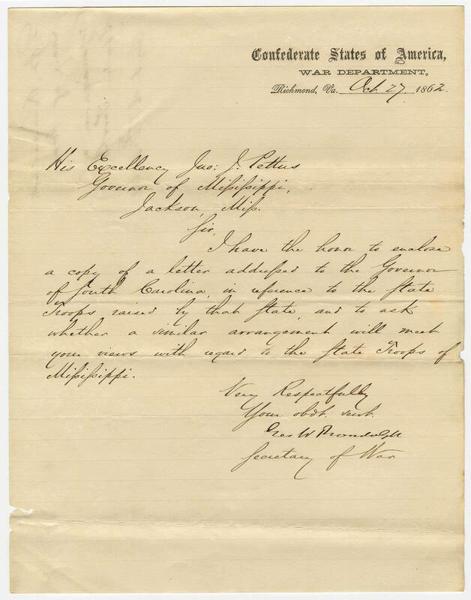 Confederate States of America,
WAR DEPARTMENT,
Richmond, Va. Oct. 27, 1862.
His Excellency Jno: J. Pettus
Govenor of Mississippi,
Jackson, Miss.
Sir,
I have the honor to enclose
a copy of a letter addressed to the Govenor
of South Carolina, in reference to the State
Troops raised by that State, and to ask
whether a similar arrangement will meet
your views with regard to the State Troops of
Mississippi.
Very Respectfully
Your obdt. servt.
Geo W Randolph
Secretary of War